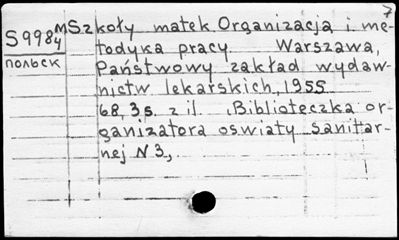 7
S998м Szkoły matek. Organizacja i me-
4 todyka pracy. Warszawa,
польск Państwowy zakład wydaw-
nictw lekarskich, 1955
68, 3 s. z il. (Biblioteczka or-
ganizatora oswiaty sanitar-
nej N 3,